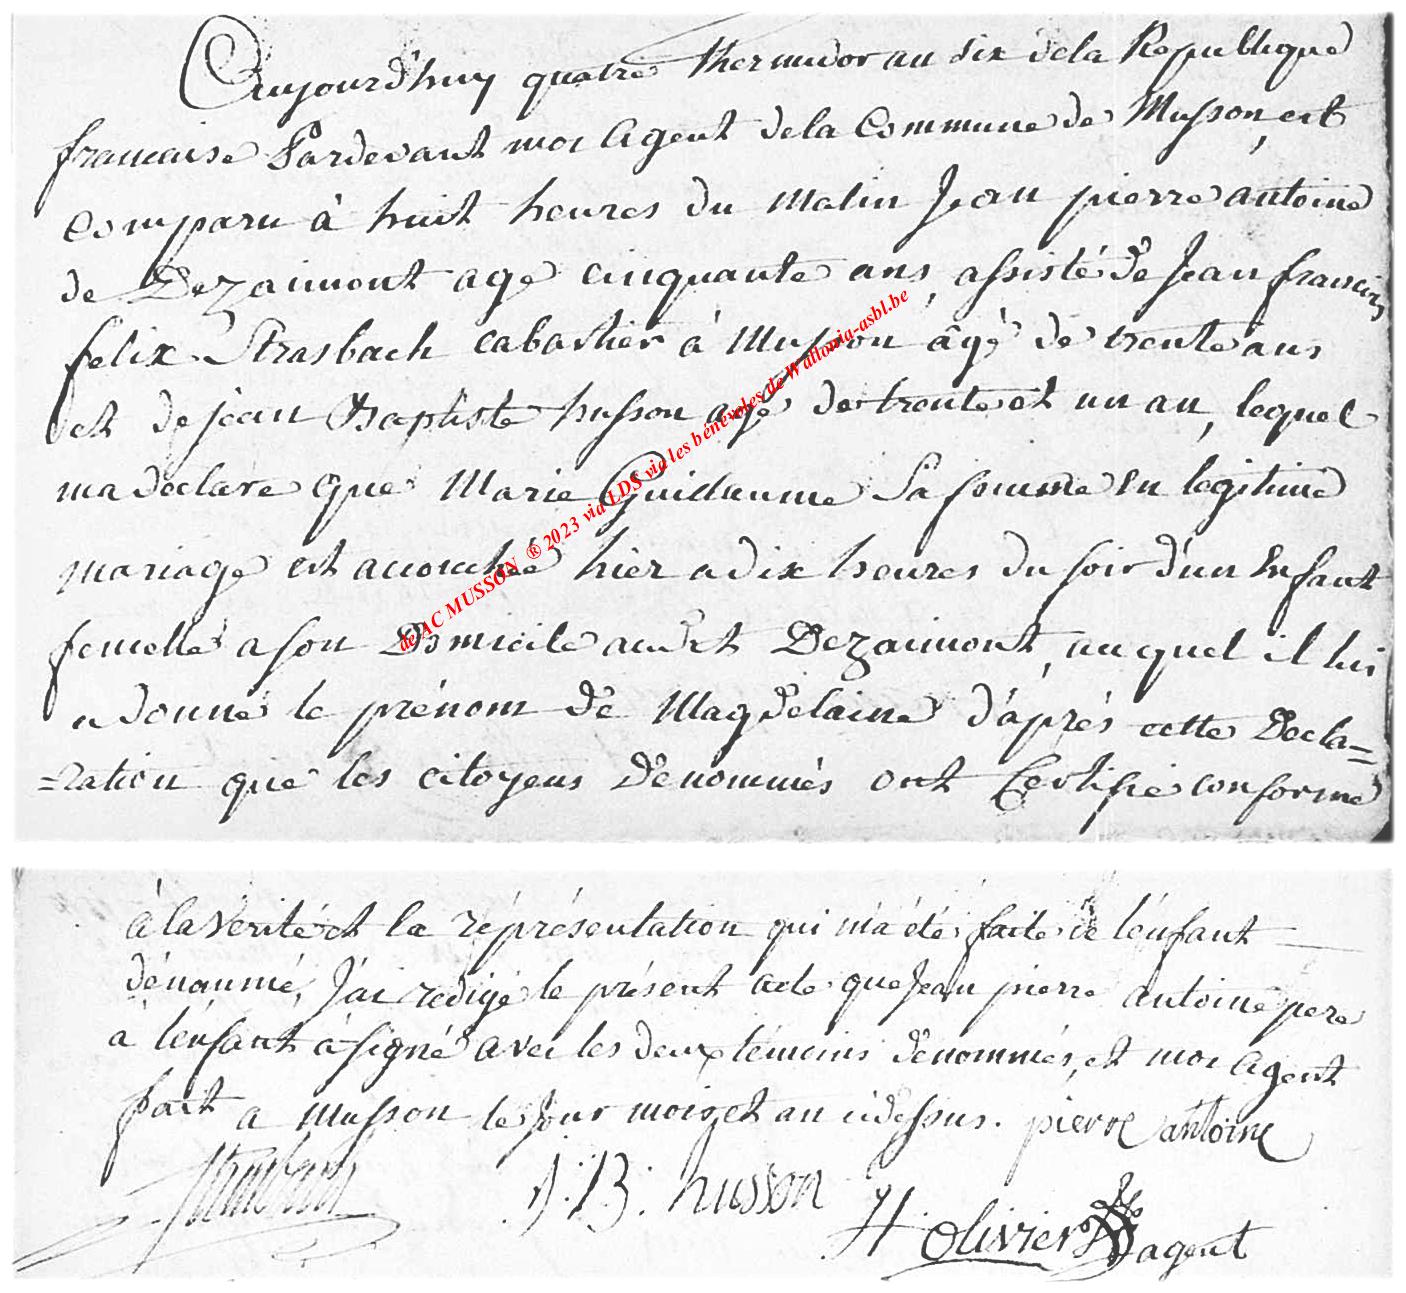 Aujourd'huy quatre thermidor an six de la Republique
francaise Pardevant moi Agent de la Commune de Musson, est
comparu à huit heures du matin Jean pierre antoine
de Dezaimont agé cinquante ans, assisté de Jean francois
felix Strasbach cabartier à Musson âgé de trente ans
et de jean Baptiste husson agé de trente et un an, lequel
ma declare que Marie Guillaume Sa femme En legitime
mariage est accouchée hier a dix heures du soir d'un Enfant
femelle a son Domicile audit Dezaimont, auquel il lui
a donné le prénom de Magdelaine d'après cette Decla=
=ration que les citoyens dénommés ont Certifié conforme
à la verité et la réprésentation qui m'a été faite de l'enfant
dénommé, J'ai redigé le présent acte que Jean pierre antoine pere
a l'enfant à signé avec les deux témoins dénommés, et moi Agent
fait a Musson le jour mois et an cidessus. pierre antoine
J: B: husson
H. olivier agent
de AC MUSSON ® 2023 via LDS via les bénévoles de Wallonia-asbl.be